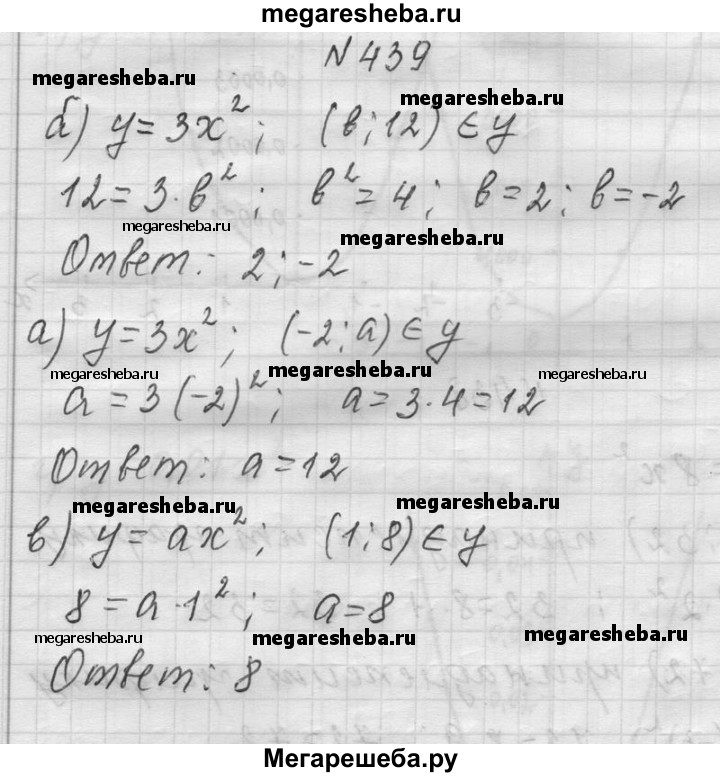 megaresheba.ru
N 439
megaresheba.ru megaresheba.ru
б) y = 3x²; (в; 12) ∈ y
12 = 3·в²; в² = 4; в = 2; в = -2
megaresheba.ru megaresheba.ru
Ответ: 2; -2
а) y = 3x²; (-2; а) ∈ y
megaresheba.ru megaresheba.ru megaresheba.ru
а = 3(-2)²; а = 3·4 = 12
Ответ: а = 12
megaresheba.ru megaresheba.ru
в) y = ax²; (1; 8) ∈ y
8 = а·1²; а = 8
megaresheba.ru megaresheba.ru megaresheba.ru
Ответ: 8
Мегарешеба.ру